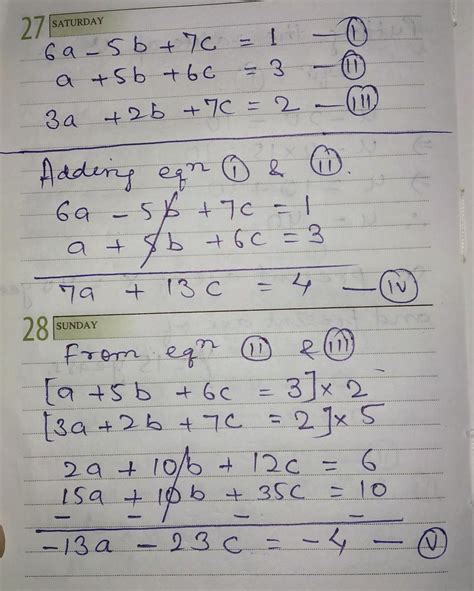 27 SATURDAY
6a - 5b + 7c = 1 — (i)
a + 5b + 6c = 3 — (ii)
3a + 2b + 7c = 2 — (iii)
Adding eqn (i) & (ii).
6a - 5b + 7c = 1
a + 5b + 6c = 3
7a + 13c = 4 — (iv)
28 SUNDAY
From eqn (ii) & (iii)
[a + 5b + 6c = 3] × 2
[3a + 2b + 7c = 2] × 5
2a + 10b + 12c = 6
15a + 10b + 35c = 10
- - - -
-13a - 23c = -4 — (v)